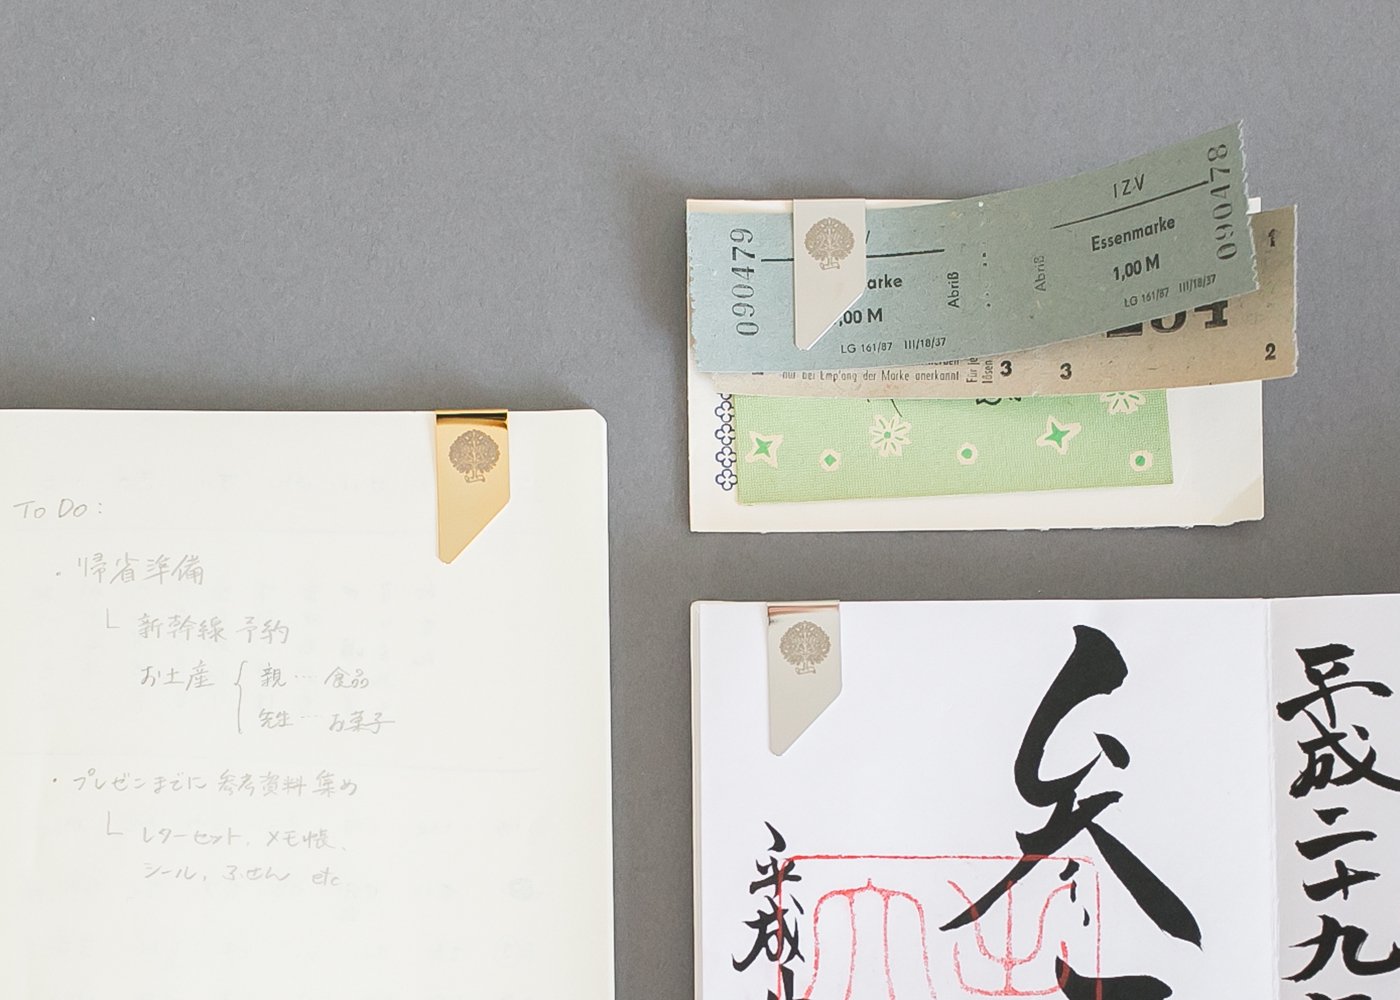 To Do:
・帰省準備
└ 新幹線 予約
お土産 { 親 … 食品
先生 … お菓子
・プレゼンまでに 参考資料 集め
└ レターセット, メモ帳、
シール, ふせん etc
090479
arke
,00 M
LG 161/87 III/18/37
Abriß
Abriß
IZV
Essenmarke
1,00 M
LG 161/87 III/18/37
090478
1
2
3
3
nur bei Empfang der Marke anerkannt
Für je
lösen
平成二十九
平成